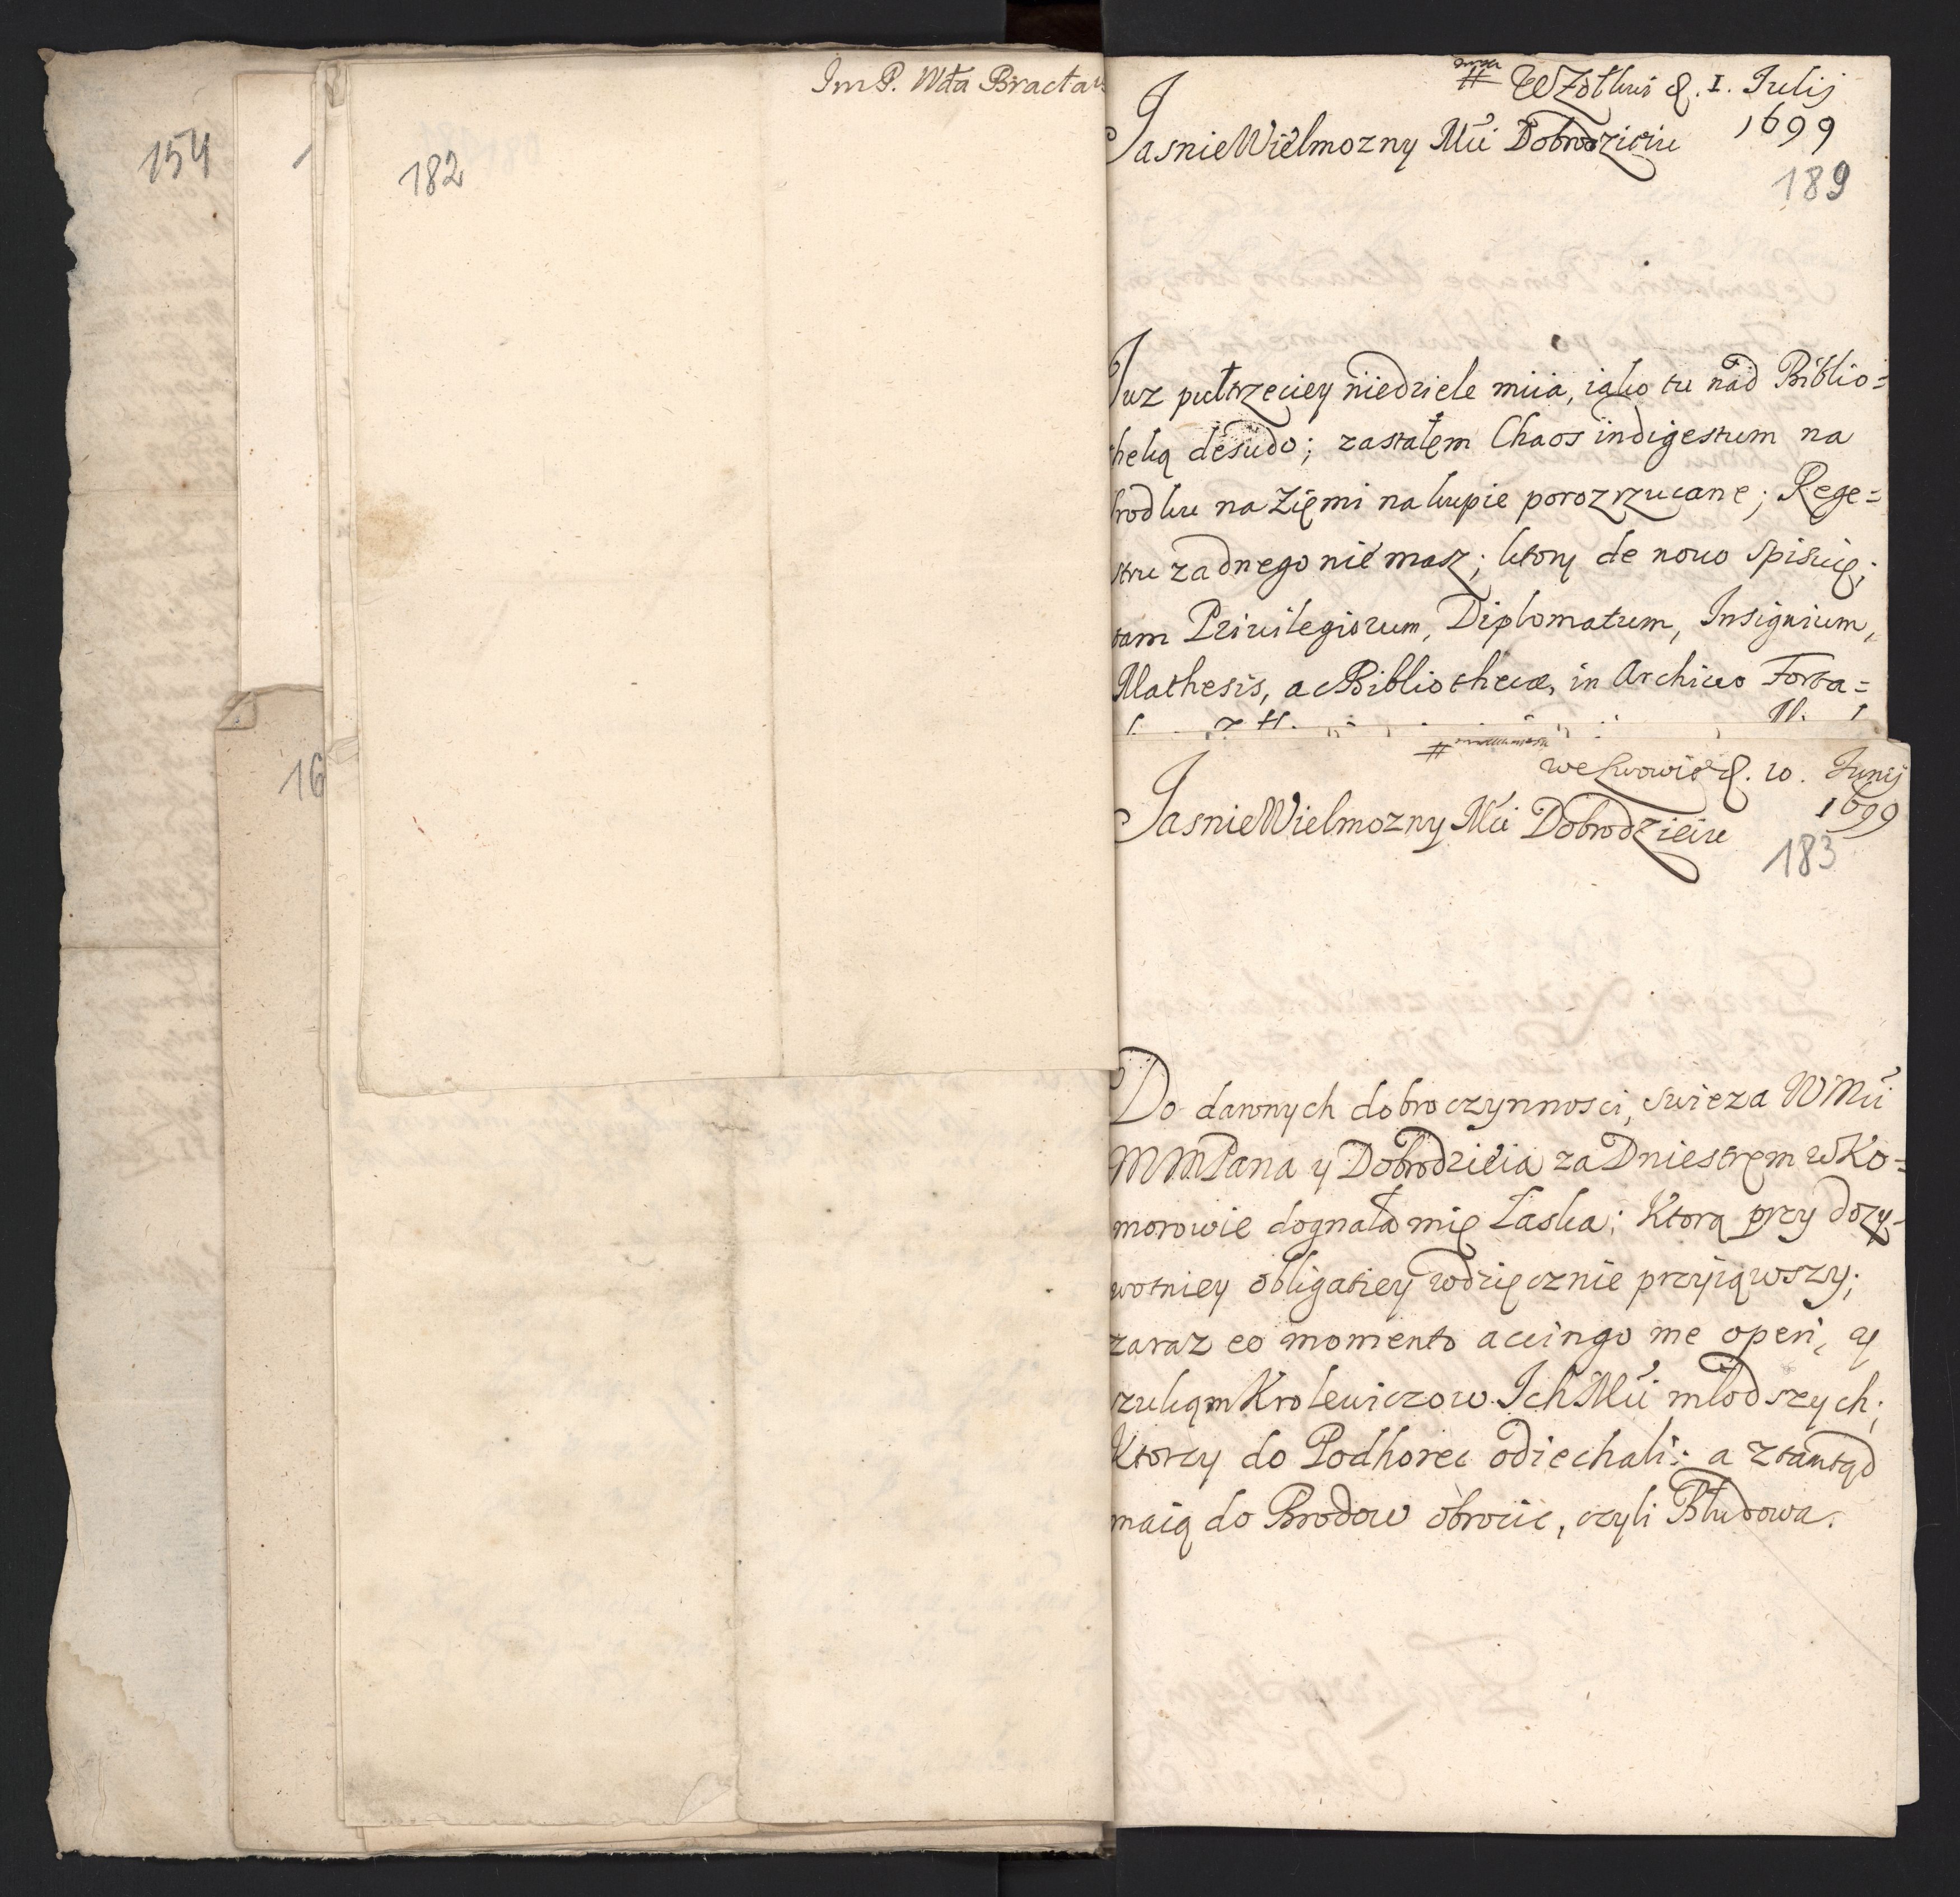 154
16
182
ImP. Wta Bracław
W Zołkwi d. 1. Julij
1699
JasnieWielmozny Mći Dobrodzieiu
189
Juz pułtrzeciey niedziele miia, iako tu nad Biblio=
theką desudo; zastałem Chaos indigestum na
srodku na Zięmi na kupie porozrzucane; Rege=
stru zadnego nie masz; ktory de nouo spisuię;
tam Priuilegiorum, Diplomatum, Insignium,
Mathesis, ac Bibliothecæ, in Archiuo Forta=
we Lwowie d. 10. Junij
1699
JasnieWielmozny Mći Dobrodzieiu
183
Do dawnych dobroczynnosci, swieza WMći
MMPana y Dobrodzieia za Dniestrem w Ko=
morowie dognała mię Łaska; Ktorą przy dozy=
wotniey obligatiey wdzięcznie przyiąwszy;
zaraz eo momento accingo me operi, y
szukąm Krolewiczow Ich Mći młodszych;
Ktorzy do Podhorec odiechali: a ztamtąd
maią do Brodow obrocic, czyli Błudowa.